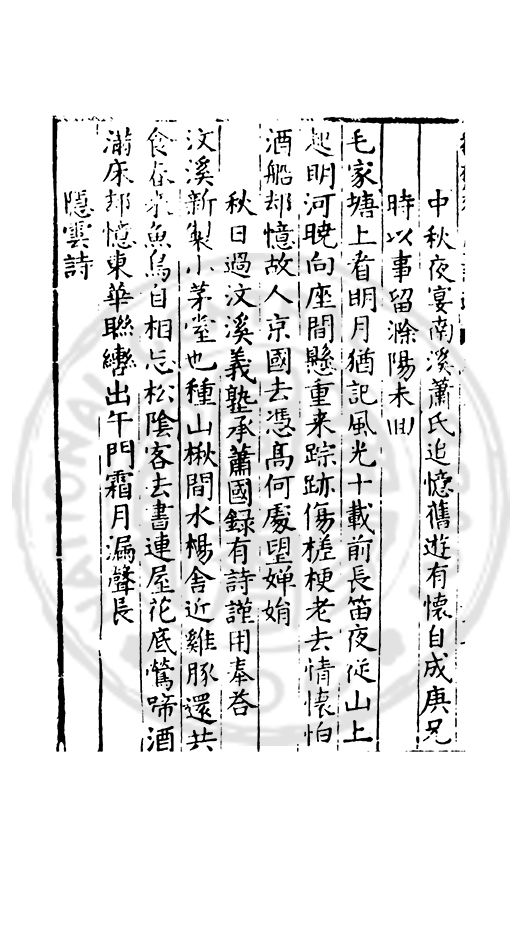 中秋夜宴南溪蕭氏追憶舊遊有懷自成庚兄
時以事留滁陽未回
毛家塘上看明月猶記風光十載前長笛夜從山上
起明河曉向座間懸重来踪跡傷槎梗老去情懷怕
酒船却憶故人京國去憑高何處望嬋娟
秋日過汶溪義塾承蕭國録有詩謹用奉答
汶溪新製小茅堂也種山楸間水楊舍近雞豚還共
食春来魚鳥自相忘松陰客去書連屋花底鶯啼酒
滿床却憶東華聯轡出午門霜月漏聲長
隱雲詩